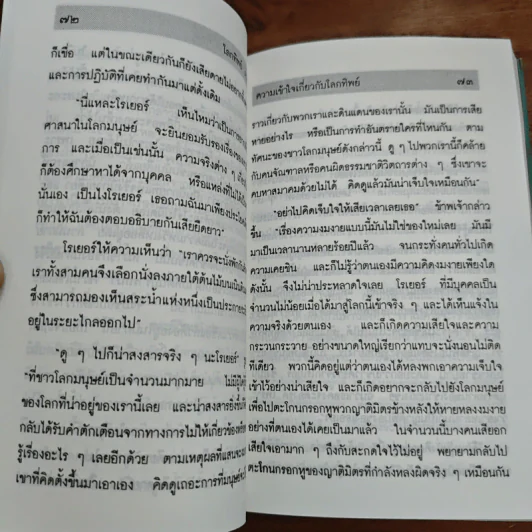 ๗๒
โลกทิพย์
ก็เชื่อ แต่ในขณะเดียวกันก็ยังเสียดายไม่อยาก
และการปฏิบัติที่เคยทำกันมาแต่ดั้งเดิม
"นี่แหละโรเยอร์ เห็นไหมว่าเป็นการ
ศาสนาในโลกมนุษย์ จะยินยอมรับรองเรื่องของ
การ และเมื่อเป็นเช่นนั้น ความจริงต่าง ๆ
ก็ต้องศึกษาหาได้จากบุคคล หรือแหล่งที่ไม่ได้
นั่นเอง เป็นไงโรเยอร์ เธอถามฉันมาเพียงประโยค
ก็ทำให้ฉันต้องตอบอธิบายกันเสียยืดยาว"
โรเยอร์ให้ความเห็นว่า "เราควรจะนั่งพักกัน
เราทั้งสามคนจึงเลือกนั่งลงภายใต้ต้นไม้บนเนิน
ซึ่งสามารถมองเห็นสระน้ำแห่งหนึ่งเป็นประกาย
อยู่ในระยะไกลออกไป"
"ดู ๆ ไปก็น่าสงสารจริง ๆ นะโรเยอร์"
"ที่ชาวโลกมนุษย์เป็นจำนวนมากมาย ไม่มีผู้
ของโลกที่น่าอยู่ของเรานี้เลย และน่าสงสารยิ่งขึ้น
กลับได้รับคำตักเตือนจากทางการไม่ให้เกี่ยวข้อง
รู้เรื่องอะไร ๆ เลยอีกด้วย ตามเหตุผลที่แสน
เขาที่คิดตั้งขึ้นมาเอาเอง คิดดูเถอะการที่มนุษย์
ความเข้าใจเกี่ยวกับโลกทิพย์
๗๓
ราวเกี่ยวกับพวกเราและดินแดนของเรานั้น มันเป็นการเสีย
หายอย่างไร หรือเป็นการทำอันตรายใครที่ไหนกัน ตาม
ทัศนะของชาวโลกมนุษย์ดังกล่าวนี้ ดู ๆ ไปพวกเรานี้ก็คล้าย
กับคนจัณฑาลหรือคนผิดธรรมชาติวิตถารต่าง ๆ ซึ่งเขาจะ
คบหาสมาคมด้วยไม่ได้ คิดดูแล้วมันน่าเจ็บใจเหมือนกัน"
"อย่าไปคิดเจ็บใจให้เสียเวลาเลยเธอ" ข้าพเจ้ากล่าว
ขึ้น "เรื่องความงมงายแบบนี้มันไม่ใช่ของใหม่เลย มันมี
มาเป็นเวลานานหลายร้อยปีแล้ว จนกระทั่งคนทั่วไปเกิด
ความเคยชิน และก็ไม่รู้ว่าตนเองมีความคิดงมงายเพียงใด
ดังนั้น จึงไม่น่าประหลาดใจเลย โรเยอร์ ที่มีบุคคลเป็น
จำนวนไม่น้อยเมื่อได้มาสู่โลกนี้เข้าจริง ๆ และได้เห็นแจ้งใน
ความจริงด้วยตนเอง และก็เกิดความเสียใจและความ
กระวนกระวาย อย่างขนาดใหญ่เรียกว่าแทบจะนั่งนอนไม่ติด
ทีเดียว พวกนี้คิดอยู่แต่ว่าตนเองได้หลงพกเอาความเจ็บใจ
เข้าไว้อย่างน่าเสียใจ และก็เกิดอยากจะกลับไปยังโลกมนุษย์
เพื่อไปตะโกนกรอกหูพวกญาติมิตรข้างหลังให้หายหลงงมงาย
อย่างที่ตนเองได้เคยเป็นมาแล้ว ในจำนวนนี้บางคนเสียอก
เสียใจเอามาก ๆ ถึงกับสะกดใจไว้ไม่อยู่ พยายามกลับไป
ตะโกนกรอกหูของญาติมิตรที่กำลังหลงผิดจริง ๆ เหมือนกัน